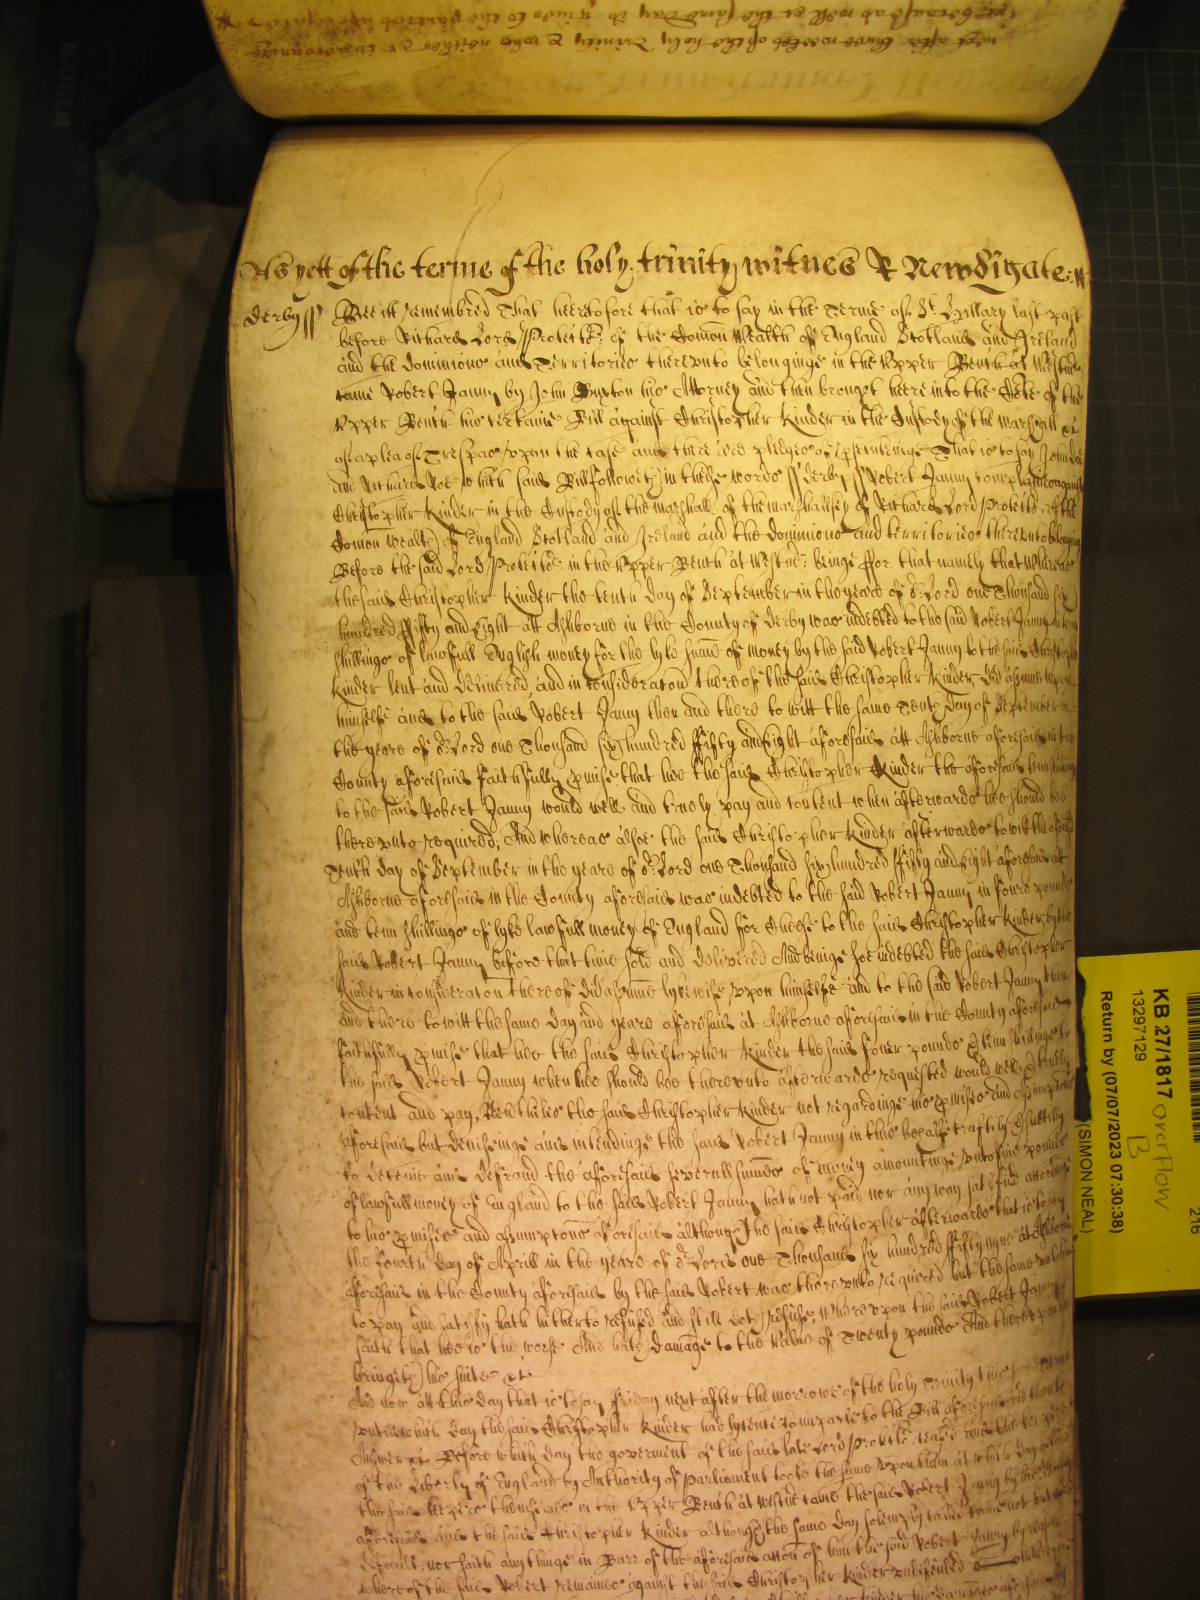 next after three weekes of the holy Trinity
As yett of the terme of the holy trinity witnes R Newdigate
Derby ss Bee itt remembred That heretofore that is to say in the Terme of St Hillary last past
before Richard Lord Protector of the Comon Wealth of England Scotland and Ireland
and the dominions and Territories thereunto belonginge in the Upper Bench at Westm
came Robert Janny by John Buxton his Attorney and then brought heere into the Cote of the
Upper Bench his certaine Bill against Christopher Kinder in the Custody of the Marshall &c
of a plea of Trespas upon the case and there are pledges of psecutinge That is to say John Doe
and Richard Roe which said Bill followeth in theise words ss Derby ss Robert Janny complaines against
Christopher Kinder in the Custody of the Marshall of the marshallsey of Richard Lord Protector of the
Comon wealth of England Scotland and Ireland and the dominions and territories thereunto belonging
Before the said Lord Protector in the Upper Bench at Westm beinge ffor that namely that Whereas
the said Christopher Kinder the tenth day of September in the yeare of or Lord one Thousand six
hundred ffifty and Eight att Ashborne in the County of Derby was indebted to the said Robert Janny in
shillings of lawfull English money for the lyke sume of money by the said Robert Janny to the said Christopher
Kinder lent and delivered, and in consideracon thereof the said Christopher Kinder did assume upon
himselfe and to the said Robert Janny then and there to witt the same Tenth day of September in
the yeare of or Lord one Thousand six hundred ffifty and Eight aforesaid att Ashborne aforesaid in the
County aforesaid faithfully pmise that hee the said Christopher Kinder the aforesaid tenn shillings
to the said Robert Janny would well and truely pay and content when afterwards hee should bee
thereunto required, And whereas alsoe the said Christopher Kinder afterwards to witt the aforesaid
Tenth day of September in the yeare of or Lord one Thousand six hundred ffifty and Eight aforesaid att
Ashborne aforesaid in the County aforesaid was indebted to the said Robert Janny in fowre pounds
and tenn shillings of lyke lawfull money of England for Cheese to the said Christopher Kinder by the
said Robert Janny before that time sold and delivered And beinge soe indebted the said Christopher
Kinder in consideracon thereof did assume lykewise upon himselfe and to the said Robert Janny then
and there to witt the same day and yeare aforesaid at Ashborne aforesaid in the County aforesaid
faithfully pmise that hee the said Christopher Kinder the said fower pounds & tenn shillings to
the said Robert Janny when hee should bee thereunto afterwards requested would well & truely
content and pay, Neverthelesse the said Christopher Kinder not regardinge his pmises and assumptons
aforesaid but devisinge and intendinge the said Robert Janny in this behalfe craftily & subtilly
to deceive and defraud the aforesaid severall sumes of money amountinge unto five pounds
of lawfull money of England to the said Robert Janny hath not paid nor any way satisfied accordinge
to his pmises and assumptons aforesaid although the said Christopher afterwards that is to say
the fourth day of Aprill in the yeare of or Lord one Thousand six hundred ffifty nyne at Ashborne
aforesaid in the County aforesaid by the said Robert was thereunto required but the same
to pay and satisfy hath hitherto refused and still doth refuse, Whereupon the said Robert Janny
saith that hee is the worse And hath damage to the value of Twenty pounds And thereupon
bringeth his suite &c
And now att this day that is to say friday next after the morrowe of the holy Trinity this same terme
untill which day the said Christopher Kinder had lycence to imparle to the Bill aforesaid and then to
Answer &c Before which day the goverment of the said late Lord Protector ceased and the keepers
of the Liberty of England by Authority of Parliament tooke the same upon them at which day before
the said keepers themselves in the Upper Bench at Westm came the said Robert Janny by his Attorney
aforesaid and the said Christopher Kinder although the same day solempnly called came not but made
default, nor saith any thinge in Barr of the aforesaid accon of him the said Robert Janny by reason
whereof the said Robert remaines against the said Christopher Kinder undefended
KB 27/1817 overflow
B
13297129
Return by (07/07/2023 07:30:38)
(SIMON NEAL)
216